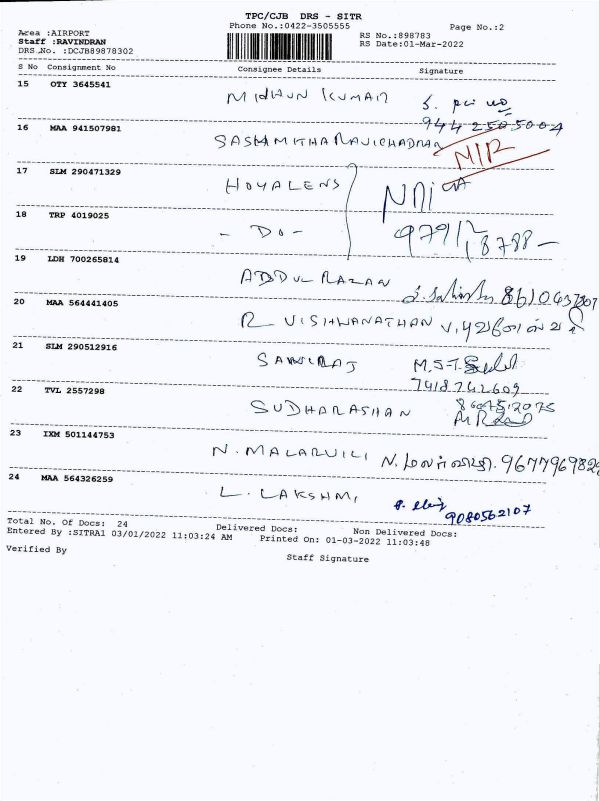 TPC/CJB DRS - SITR
Phone No.:0422-3505555
Page No.:2
Area :AIRPORT
Staff :RAVINDRAN
DRS.No. :DCJB89878302
RS No.:898783
RS Date:01-Mar-2022
S No Consignment No Consignee Details Signature
15 OTY 3645541 MIDHUN KUMAR
9442505004
16 MAA 941507981 SASHMITHA RAVICHADRAN NIR
17 SLM 290471329 HOYALENS
18 TRP 4019025 - DO -
19 LDH 700265814 ABDUL RAZAN
20 MAA 564441405 R VISHWANATHAN
21 SLM 290512916 M.S.T.
7418742609
22 TVL 2557298 SUDHARASHAN
23 IXM 501144753 N. MALARVILI N. மலர்விழி. 967796982
24 MAA 564326259 L. LAKSHMI
9080562107
Total No. Of Docs: 24 Delivered Docs: Non Delivered Docs:
Entered By :SITRA1 03/01/2022 11:03:24 AM Printed On: 01-03-2022 11:03:48
Verified By Staff Signature